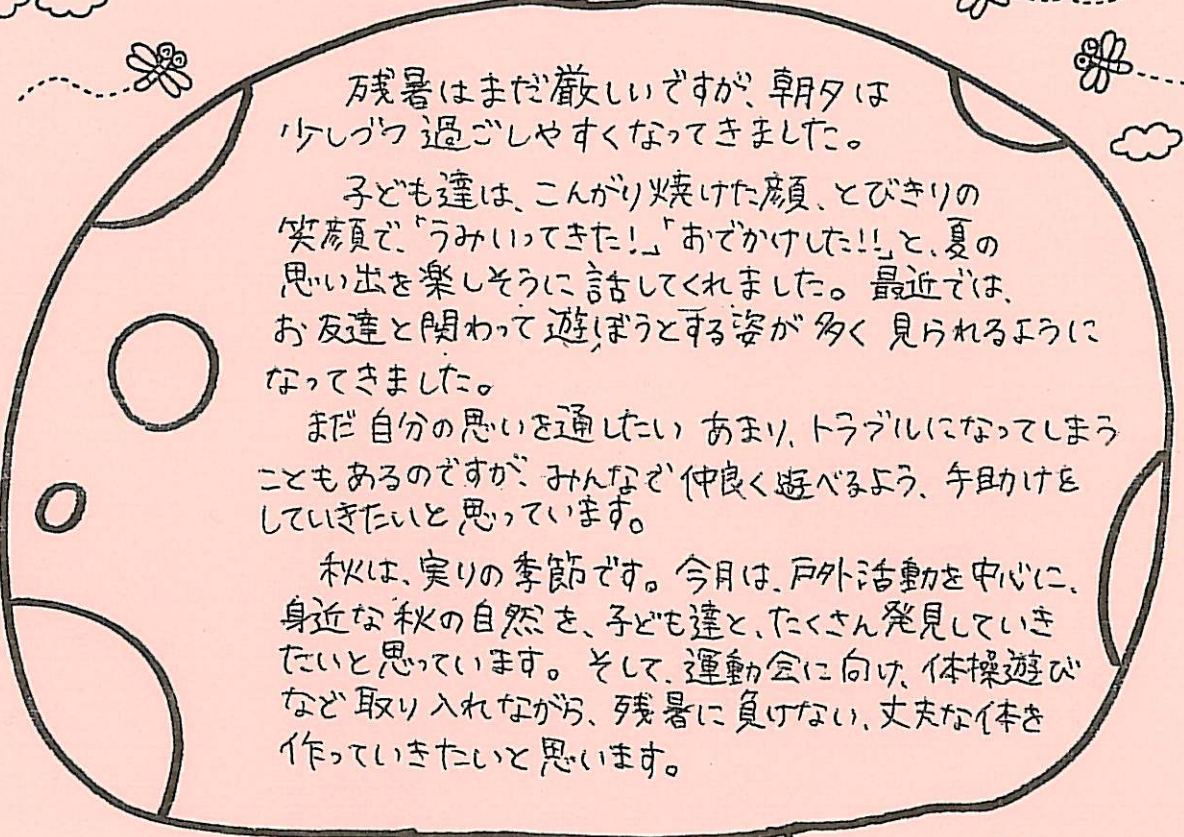 残暑はまだ厳しいですが、朝夕は
少しづつ過ごしやすくなってきました。
子ども達は、こんがり焼けた顔、とびきりの
笑顔で、「うみいってきた!」「おでかけした!!」と、夏の
思い出を楽しそうに話してくれました。最近では、
お友達と関わって遊ぼうとする姿が多く見られるように
なってきました。
まだ自分の思いを通したいあまり、トラブルになってしまう
こともあるのですが、みんなで仲良く遊べるよう、手助けを
していきたいと思っています。
秋は、実りの季節です。今月は、戸外活動を中心に、
身近な秋の自然を、子ども達と、たくさん発見していき
たいと思っています。そして、運動会に向け、体操遊び
など取り入れながら、残暑に負けない、丈夫な体を
作っていきたいと思います。